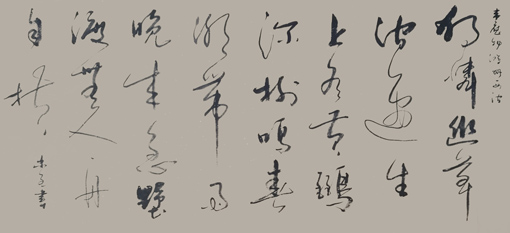 韋應物滁州西澗
獨憐幽草
澗邊生
上有黄鸝
深樹鳴春
潮帶雨
晚來急野
渡無人舟
自橫
書